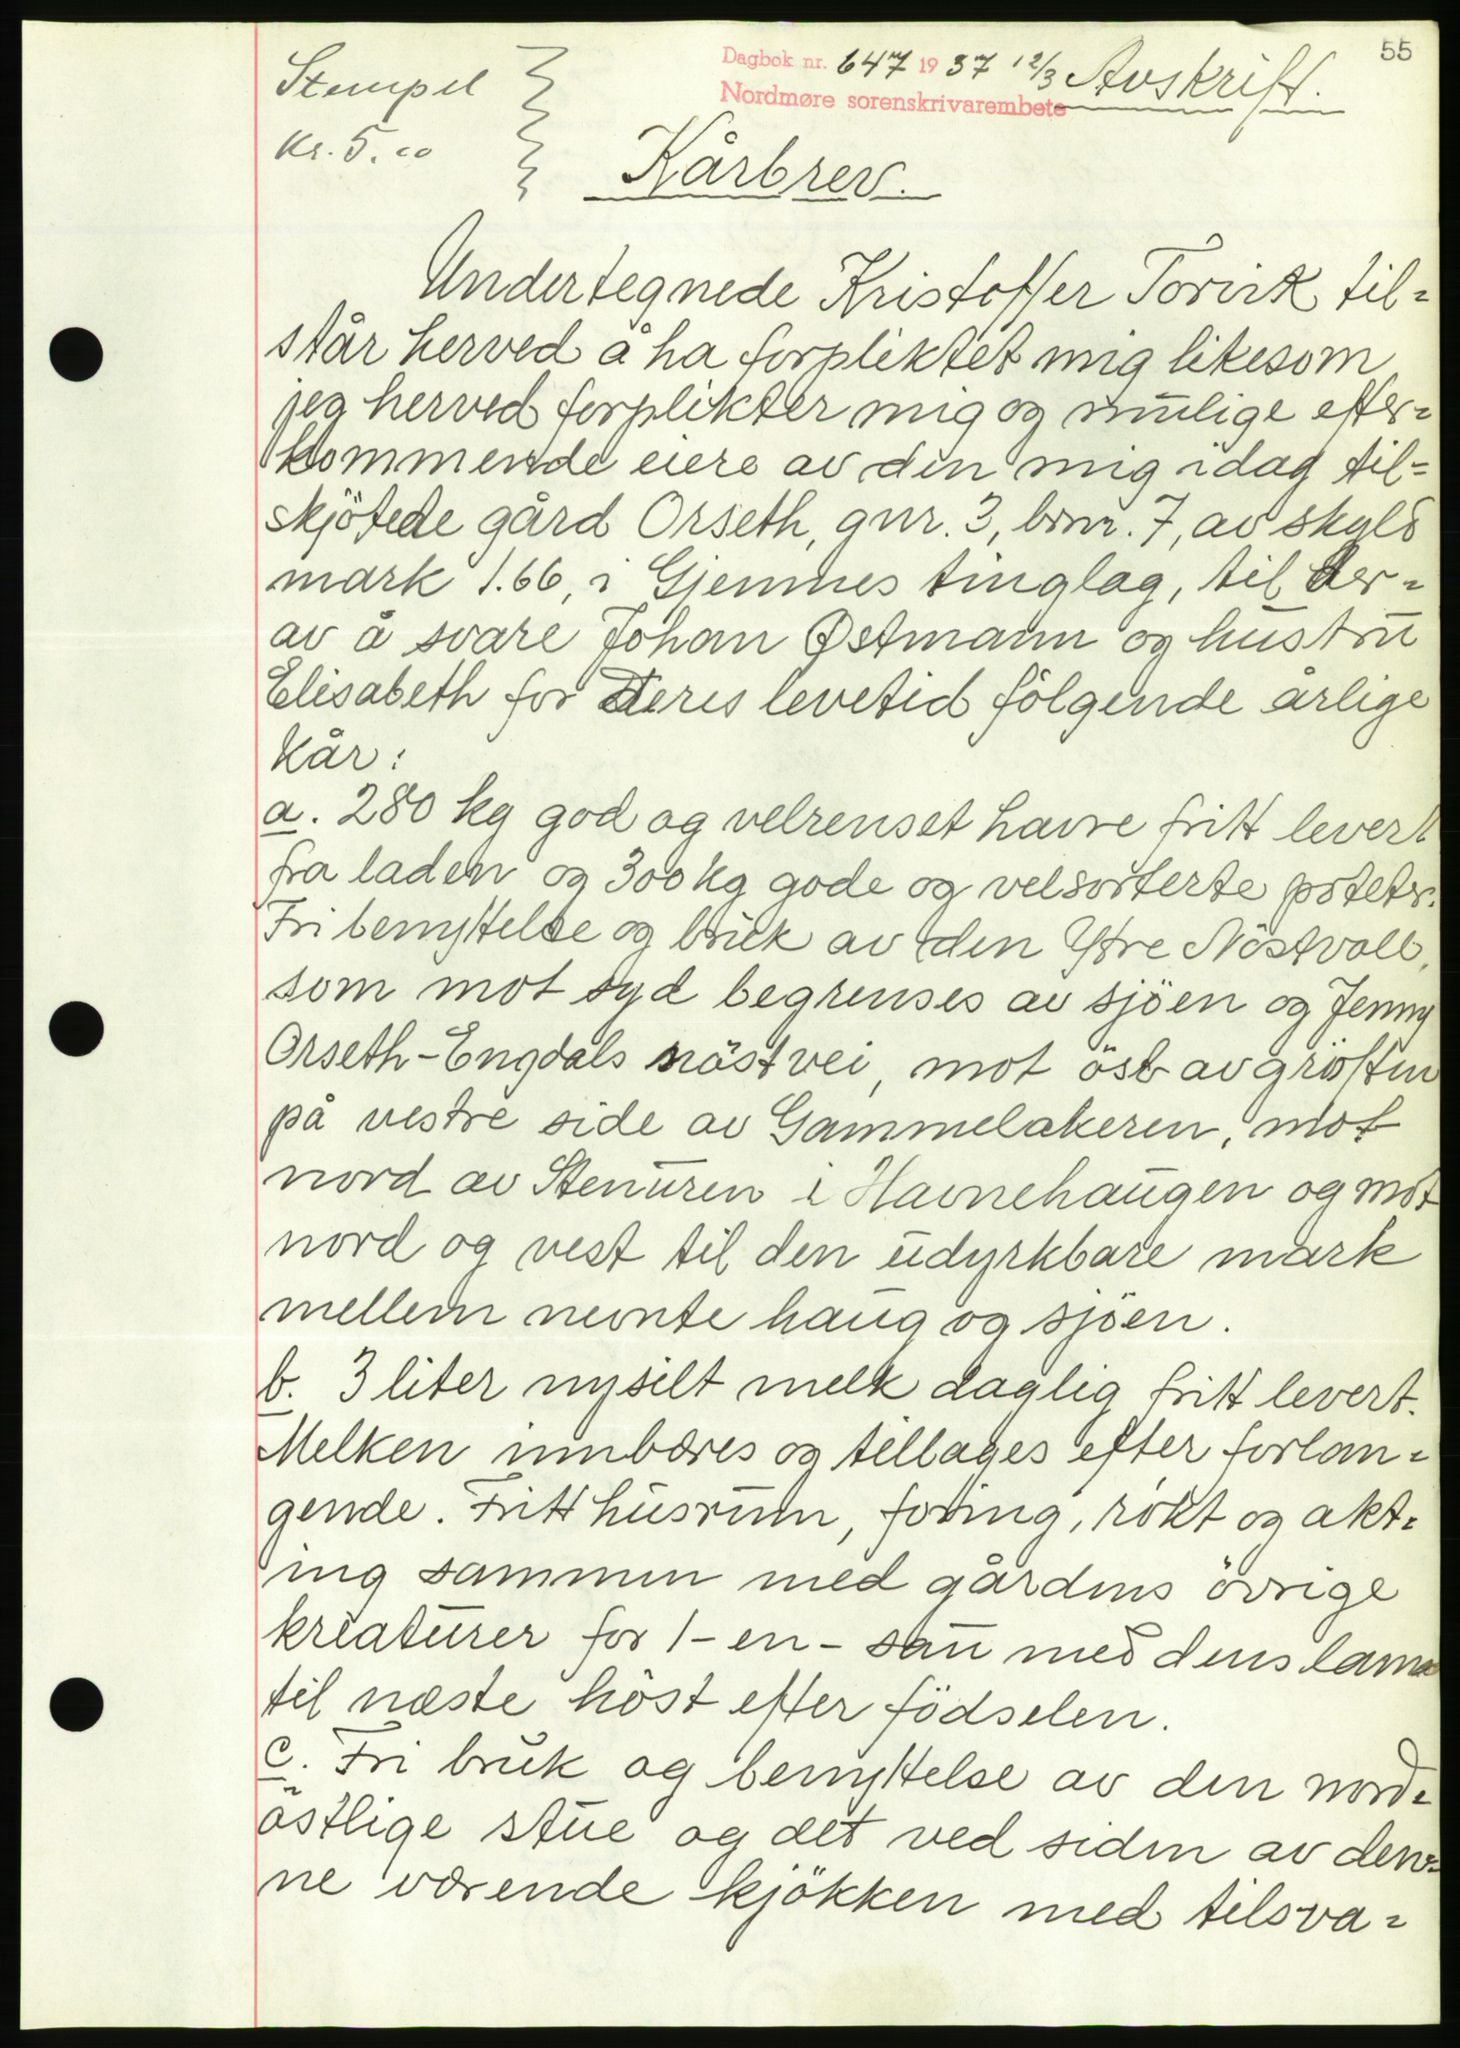 55
Dagbok nr. 647 1937 12/3 Avskrift.
Nordmøre sorenskrivarembete
Stempel
Kr. 5.00
Kårbrev.
Undertegnede Kristoffer Torvik til=
står herved å ha forpliktet mig likesom
jeg herved forplikter mig og mulige efter=
kommende eiere av den mig idag til=
skjötede gård Orseth, gnr. 3, bnr. 7, av skyld
mark 1.66, i Gjemnes tinglag, til der=
av å svare Johan Østmann og hustru
Elisabeth for deres levetid fölgende årlige
kår:
a. 280 kg god og velrenset havre fritt levert
fra laden og 300 kg gode og velsorterte poteter.
Fri benyttelse og bruk av den Ytre Nöstvoll,
som mot syd begrenses av sjöen og Jenny
Orseth-Engdals nöstvei, mot öst av gröften
på vestre side av Gammelakeren, mot
nord av Stenuren i Havnehaugen og mot
nord og vest til den udyrkbare mark
mellem nevnte haug og sjöen.
b. 3 liter nysilt melk daglig fritt levert.
Melken innbæres og tillages efter forlan=
gende. Fritt husrum, foring, rökt og akt=
ing sammen med gårdens övrige
kreaturer for 1-en- sau med dens lam
til næste höst efter födselen.
c. Fri bruk og benyttelse av den nord=
östlige stue og det ved siden av den=
ne værende kjökken med tilsva=